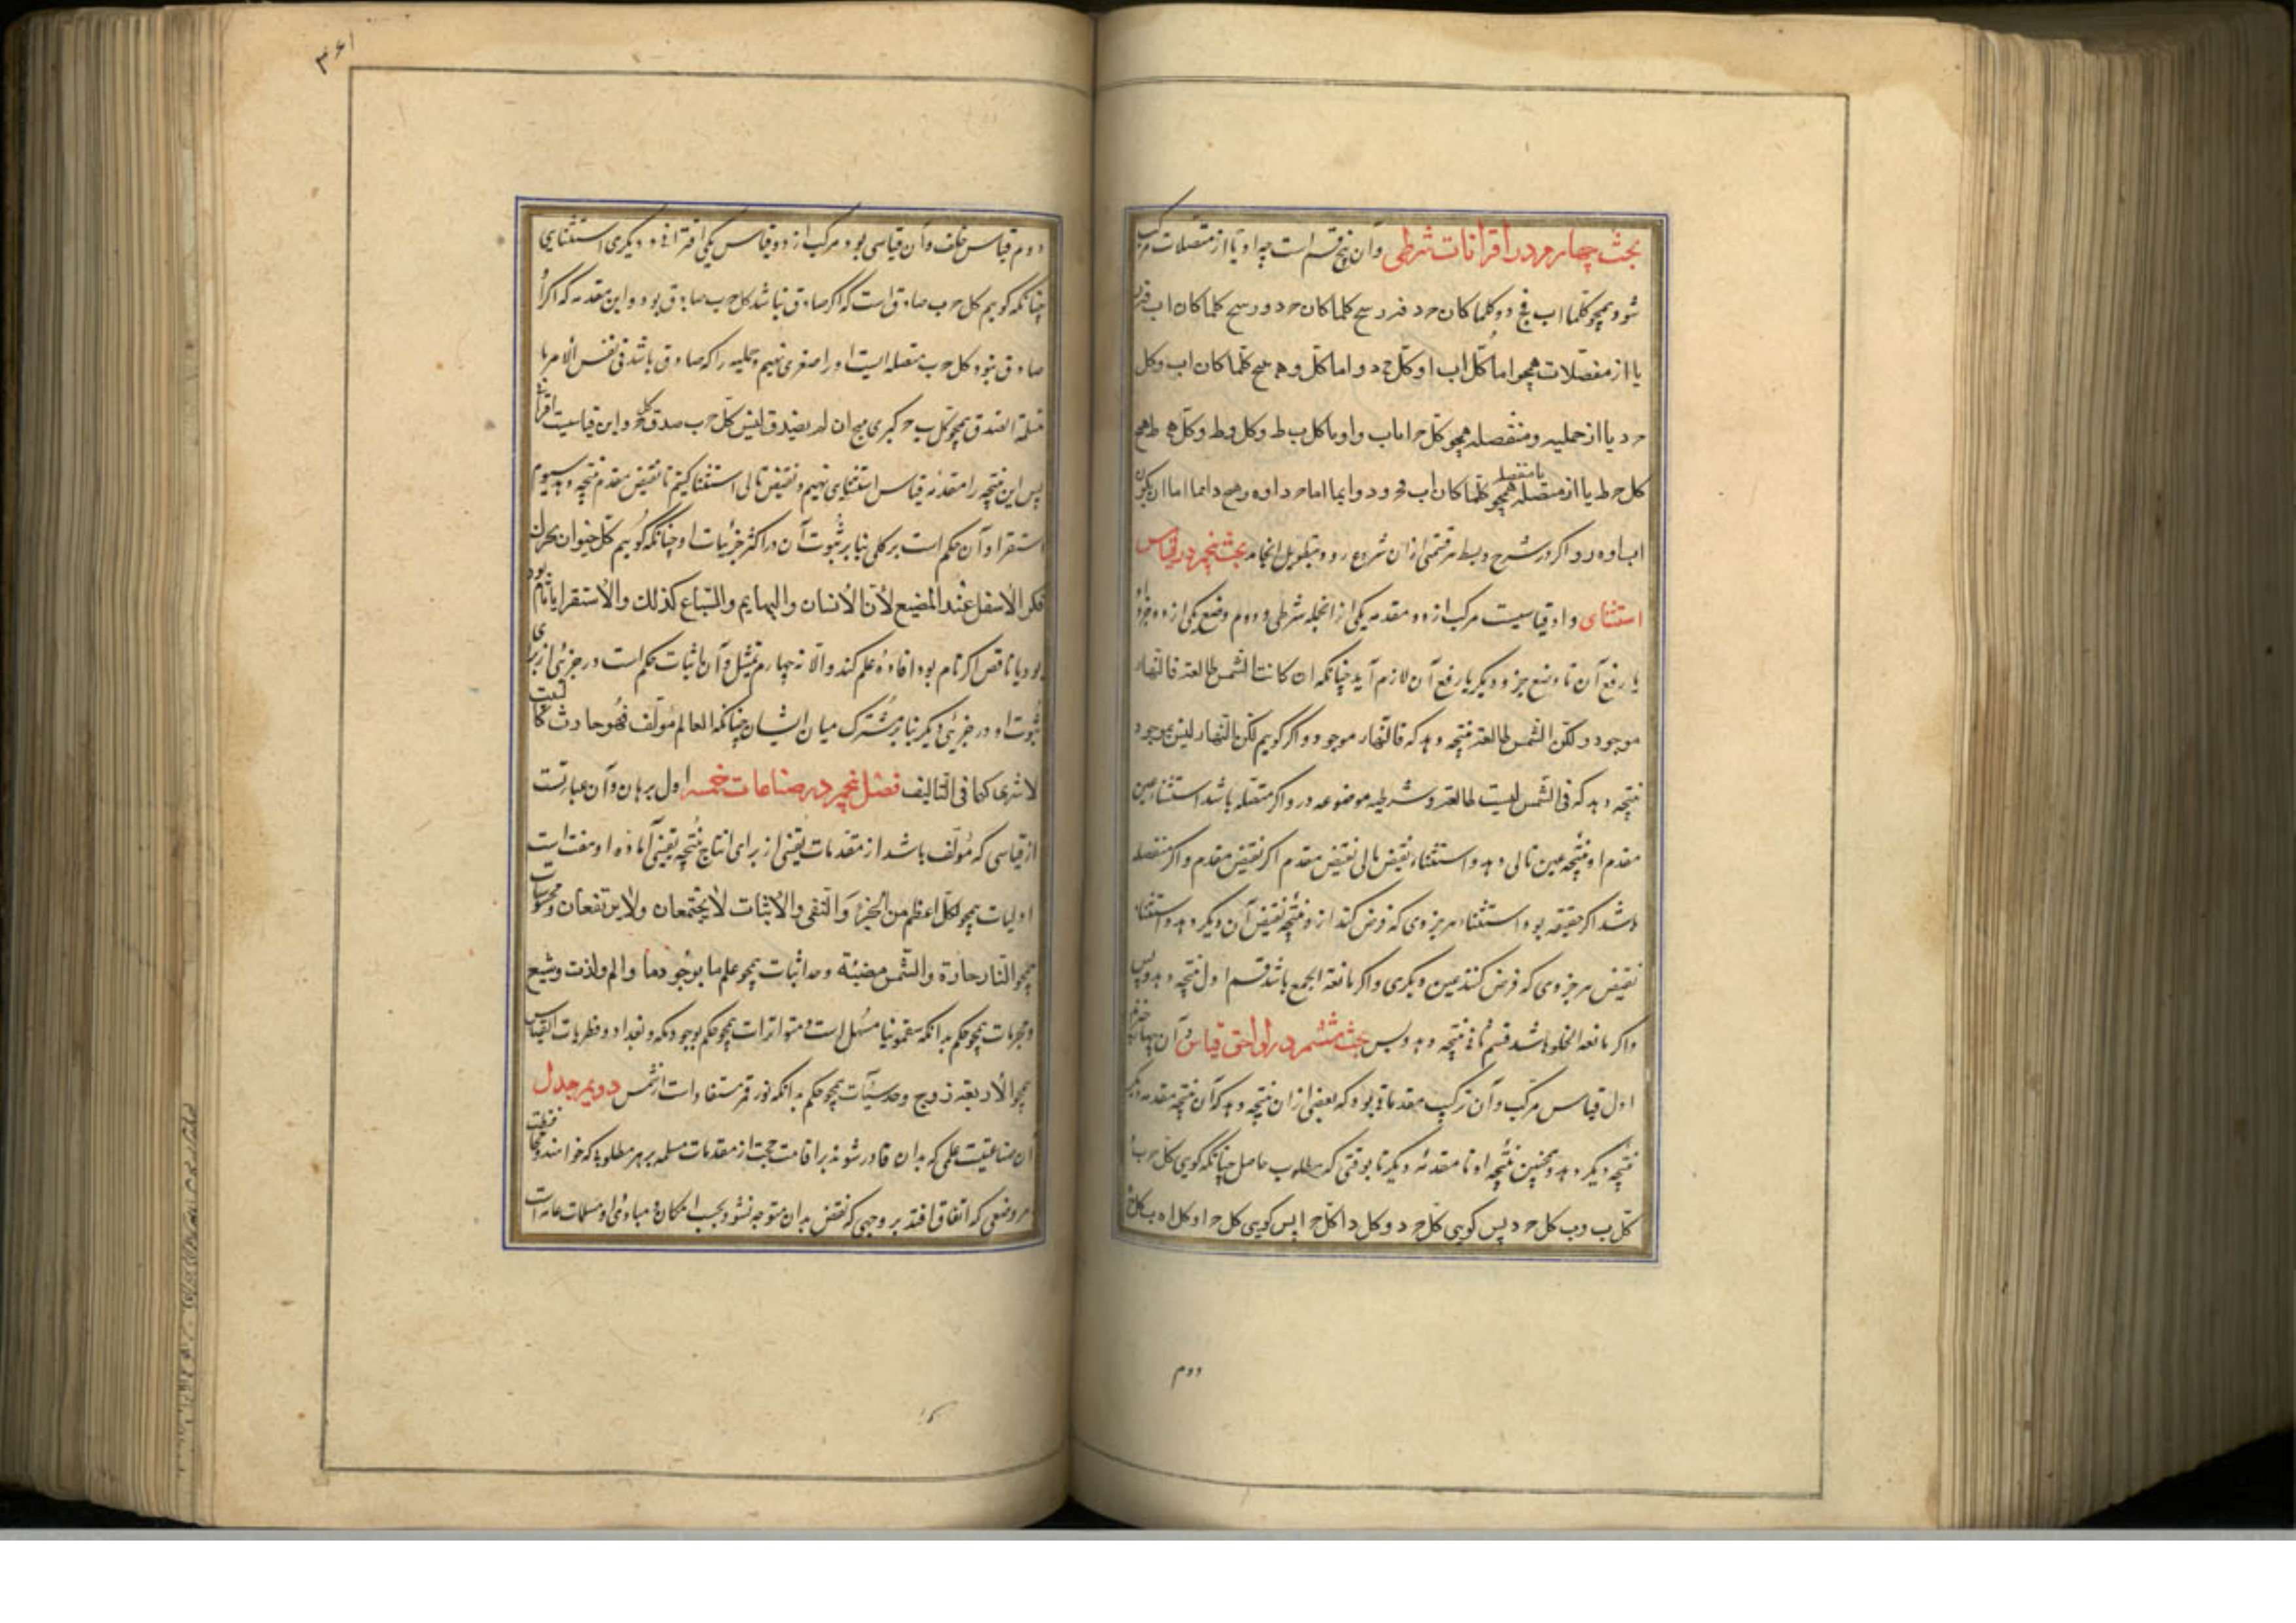 بحث چهارم در اقترانات شرطی و آن پنج قسم است چه او یا از متصلات مرکب
شود همچو کلما اب فج د و کلما کان ح د فر کلما کان ح د و ر کلما کان اب
یا از منفصلات همچو اما کل اب او کل ح د و اما کل کلما کان اب وکل
ح د یا از حملیه و منفصله همچو کل ح اما ب واو اما کل ب ط وکل و ط وکل ه ط
کل ح ط یا از متصله یا منفصله همچو کلما کان اب ف ح د و دایما اما ح د او ه ر دایما اما ان یکون
اب او ه ر و اگر در شرح و بسط هر قسمی از آن شروع رود بتطویل انجامد بحث پنجم در قیاس
استثنای و او قیاسیست مرکب از دو مقدمه یکی از آنجمله شرطی و دوم وضع یکی از دو جزو
یا رفع آن تا وضع جزو دیگر یا رفع آن لازم آید چنانکه ان کانت الشمس طالعة فالنهار
موجود و لکن الشمس طالعة نتیجه دهد که فالنهار موجود و اگر گوییم لکن النهار لیس بموجود
نتیجه دهد که فی الشمس لیست طالعة و شرطیه موضوعه در او اگر متصله باشد استثناء عین
مقدم او نتیجه عین تالی دهد و استثناء نقیض تالی نقیض مقدم اگر نقیض مقدم و اگر منفصله
باشد اگر حقیقیه بود استثناء هر جزوی که فرض کنند از و نتیجه نقیض آن دیگر دهد و استثناء
نقیض هر جزوی که فرض کنند عین دیگری و اگر مانعة الجمع باشد قسم اول نتیجه دهد و بس
و اگر مانعة الخلو باشد قسم ثانی نتیجه دهد و بس بحث ششم در لواحق قیاس و آن چهار چیزند
اول قیاس مرکب و آن ترکیب مقدماتی بود که بعضی از آن نتیجه دهد که آن نتیجه مقدمه دیگر
نتیجه دیگر دهد و همچنین نتیجه او با مقدمه دیگر تا بوقتی که مطلوب حاصل چنانکه گویی کل ح ب
کل ب د ب کل ح د پس گویی کل ح د و کل د ا کل ح ا پس گویی کل ح ا و کل ا ه ب کل ح ه
دوم
۳۶۱
دوم قیاس خلف و آن قیاسی بود مرکب از دو قیاس یکی اقترانی و دیگری استثنایی
چنانکه گوییم کل ح ب صادق است که اگر صادق نباشد کل ح ب صادق بود و این مقدمه که اگر
صادق نبود کل ح ب متصله ایست او را صغری نهیم و حملیه را که صادق باشد فی نفس الامر یا
مسلمة الصدق همچو کل ب ح کبری هیچ ان لم یصدق لیس کل ح ب صدق کل و این قیاسیست اقترانی
پس این نتیجه را مقدمه قیاس استثنایی نهیم و نقیض تالی استثنا کنیم تا نقیض مقدم نتیجه دهد سیوم
استقرا و آن حکم است بر کلی بنا بر ثبوت آن در اکثر جزئیات او چنانکه گوییم کل حیوان یحرک
فکه الأسفل عند المضغ لأن الأنسان والبهایم والسباع کذلك والاستقرا یا تام
بود یا ناقص اگر تام بود افاده علم کند و الا نه چهارم تمثیل و آن اثبات حکم است در جزئی از برای
ثبوت او در جزئی دیگر بنا بر مشترک میان ایشان چنانکه العالم مؤلف فهو حادث کالبیت
لاشتراکهما فی التألیف فصل پنجم در صناعات خمسه اول برهان و آن عبارتست
از قیاسی که مؤلف باشد از مقدمات یقینی از برای انتاج نتیجه یقینی اما ماده او هفت است
اولیات همچو لکل اعظم من الجزء و النفی والاثبات لایجتمعان ولایرتفعان و محسوسات
همچو النار حارة والشمس مضیئة وحدانیات همچو علم ما بوجود ما والم ولذت و شبع
و مجربات همچو حکم بدانکه سقمونیا مسهل است و متواترات همچو حکم بوجود مکه و بغداد و فطریات القیاس
همچو الاربعة زوج وحدسیات همچو حکم بدانکه نور قمر مستفاد است از شمس دویم جدل
و آن صناعتیست علمی که بدان قادر شوند بر اقامت حجت از مقدمات مسلمه بر هر مطلوبی که خواهند
هر وضعی که اتفاق افتد بر وجهی که نقض بدان متوجه نشود بحسب امکان و مبادی او مسلمات عامه است